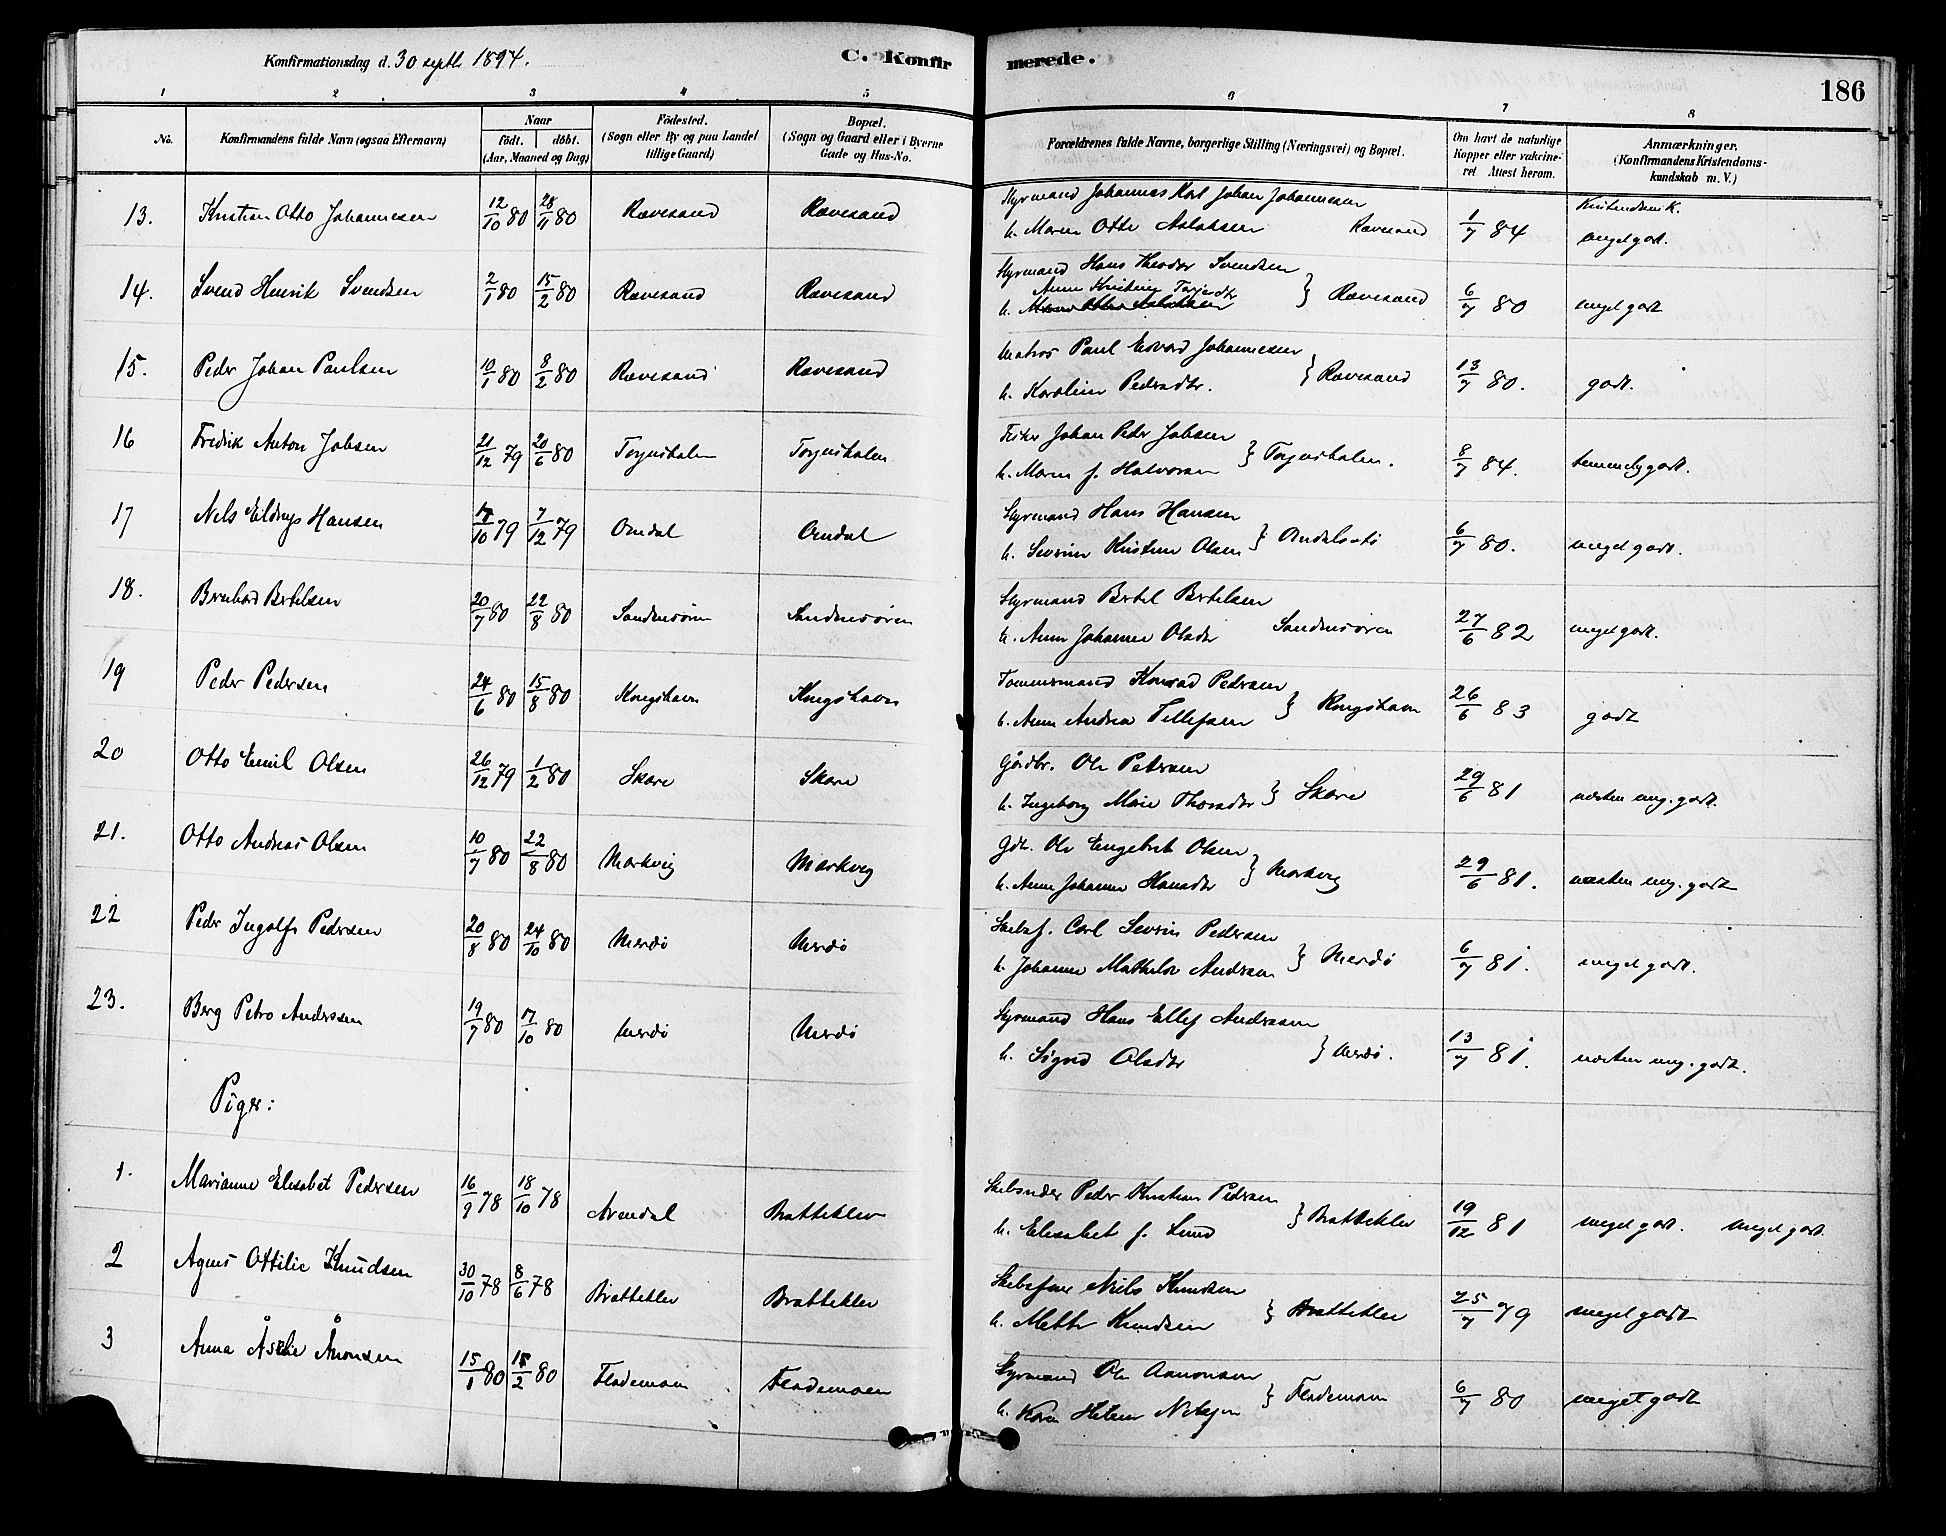 Konfirmationsdag d. 30 septb. 1894.
C. Konfirmerede.
186
1 2 3 4 5 6 7 8
No. Konfirmandens fulde Navn (ogsaa Efternavn) Naar født. døbt. (Aar, Maaned og Dag) Fødested. (Sogn eller By og paa Landet tillige Gaard) Bopæl. (Sogn og Gaard eller i Byerne Gade og Hus-No. Forældrenes fulde Navne, borgerlige Stilling (Næringsvei) og Bopæl. Om havt de naturlige Kopper eller vakcineret Attest herom. Anmærkninger. (Konfirmandens Kristendomskundskab m. V.)
13. Kristian Otto Johannesen 12/10 80 28/11 80 Rævesand Rævesand Styrmand Johannes Karl Johan Johannesen
h. Maren Otte Aslaksen Rævesand 1/7 84 meget godt.
14. Svend Henrik Svendsen 2/1 80 15/2 80 Rævesand Rævesand Styrmand Hans Theodor Svendsen
Anne Kristine Torjesdtr
h. } Rævesand 6/7 80 meget godt
15. Peder Johan Paulsen 10/1 80 8/2 80 Rævesand Rævesand Matros Paul Edvard Johannesen
h. Karoline Pedersdtr. } Rævesand 13/7 80. godt.
16 Fredrik Anton Jobsen 21/12 79 20/6 80 Torjusholm Torjusholm Fisker Johan Peder Jobsen
h. Maren f. Halvorsen } Torjusholm. 8/7 84. temmelig godt.
17 Nels Eldrup Hansen 17/10 79 7/12 79 Omdal Omdal Styrmand Hans Hansen
h. Severine Kristine Olsen } 6/7 80. meget godt.
18. Bernhard Bertelsen 20/7 80 22/8 80 Sandumsøren Sandumsøren Styrmand Bertel Bertelsen
h. Anne Johanne Olsdtr Sandumsøren 27/6 82 meget godt.
19 Peder Pedersen 24/6 80 15/8 80 Kongshavn Kongshavn Tømmermand Konrad Pedersen
h. Anne Andrea Tellefsen } Kongshavn 26/6 83 godt
20 Otto Emil Olsen 26/12 79 1/2 80 Skare Skare Gårdbr. Ole Petersen
h. Ingeborg Marie Thorsdtr } Skare 29/6 81 næsten meg. godt.
21. Otto Andreas Olsen 10/7 80 22/8 80 Markvig Markvig Gdb. Ole Engebret Olsen
h. Anne Johanne Hansdtr } Markvig 29/6 81. næsten meg. godt
22 Peder Ingolf Pedersen 20/8 80 24/10 80 Merdø Merdø Skibsf. Carl Severin Pedersen
h. Johanne Mathilde Andersen } Merdø 6/7 81. meget godt.
23. Berg Petro Anderssen 19/7 80 17/10 80 Merdø Merdø Styrmand Hans Ellef Anderssen
h. Sigrid Olsdtr } Merdø. 13/7 81. næsten meg. godt.
Piger:
1. Marianne Elisabet Pedersen 16/9 78 18/10 78 Arendal Brattekler Peder Kristian Pedersen
h. Elisabet f. Lund } Brattekler 19/12 81 meget godt. meget godt.
2 Agnes Ottilie Knudsen 30/10 78 8/6 78 Brattekler Brattekler Skibsfører Niels Knudsen
h. Mette Knudsen } Brattekler 25/7 79 meget godt
3 Anna Åmonsen 15/1 80 15/2 80 Flademoen Flademoen Styrmand Ole Aamonsen
h. Karen Helene Nielsen } Flademoen 6/7 80 meget godt